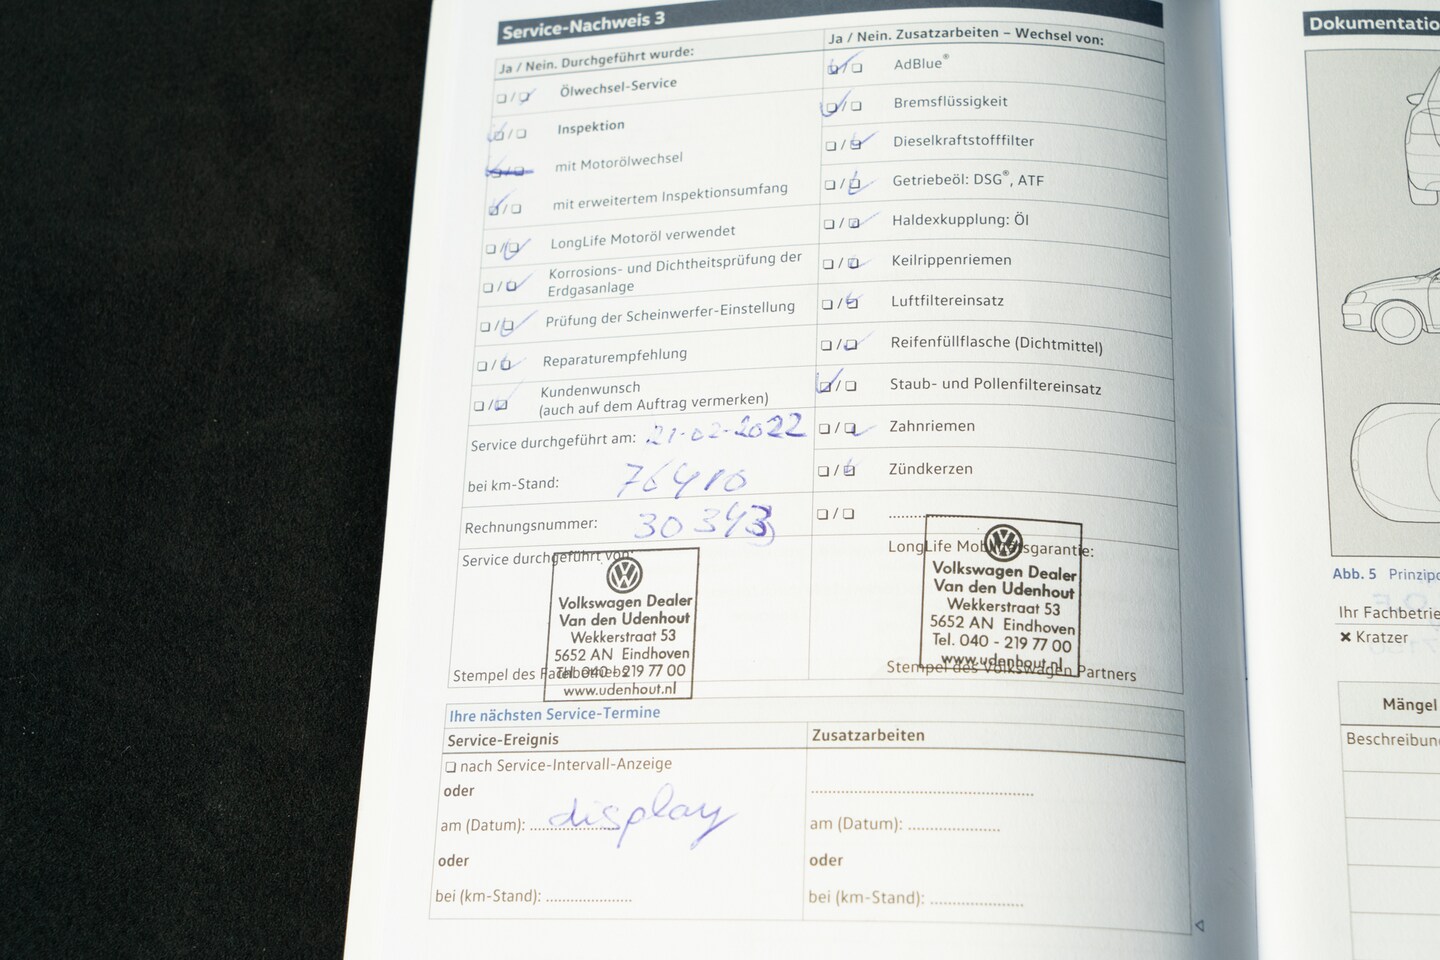 Service-Nachweis 3
Ja / Nein. Durchgeführt wurde:
☐/☑ Ölwechsel-Service
☑/☐ Inspektion
☐/☐ mit Motorölwechsel
☑/☐ mit erweitertem Inspektionsumfang
☐/☑ LongLife Motoröl verwendet
☐/☑ Korrosions- und Dichtheitsprüfung der
Erdgasanlage
☐/☑ Prüfung der Scheinwerfer-Einstellung
☐/☑ Reparaturempfehlung
☐/☑ Kundenwunsch
(auch auf dem Auftrag vermerken)
Service durchgeführt am: 21-02-2022
bei km-Stand: 76410
Rechnungsnummer: 30343
Service durchgeführt von:
Volkswagen Dealer
Van den Udenhout
Wekkerstraat 53
5652 AN Eindhoven
Tel. 040 - 219 77 00
www.udenhout.nl
Stempel des Fachbetriebs
Ja / Nein. Zusatzarbeiten – Wechsel von:
☑/☐ AdBlue®
☑/☐ Bremsflüssigkeit
☐/☑ Dieselkraftstofffilter
☐/☑ Getriebeöl: DSG®, ATF
☐/☑ Haldexkupplung: Öl
☐/☑ Keilrippenriemen
☐/☑ Luftfiltereinsatz
☐/☑ Reifenfüllflasche (Dichtmittel)
☑/☐ Staub- und Pollenfiltereinsatz
☐/☑ Zahnriemen
☐/☑ Zündkerzen
☐/☐ ....................
LongLife Mobilitätsgarantie:
Volkswagen Dealer
Van den Udenhout
Wekkerstraat 53
5652 AN Eindhoven
Tel. 040 - 219 77 00
www.udenhout.nl
Stempel des Volkswagen Partners
Ihre nächsten Service-Termine
Service-Ereignis
☐ nach Service-Intervall-Anzeige
oder
am (Datum): display
oder
bei (km-Stand): ....................
Zusatzarbeiten
..................................................
am (Datum): ....................
oder
bei (km-Stand): ....................
Dokumentatio
Abb. 5 Prinzipd
Ihr Fachbetrie
✖ Kratzer
Mängel
Beschreibun